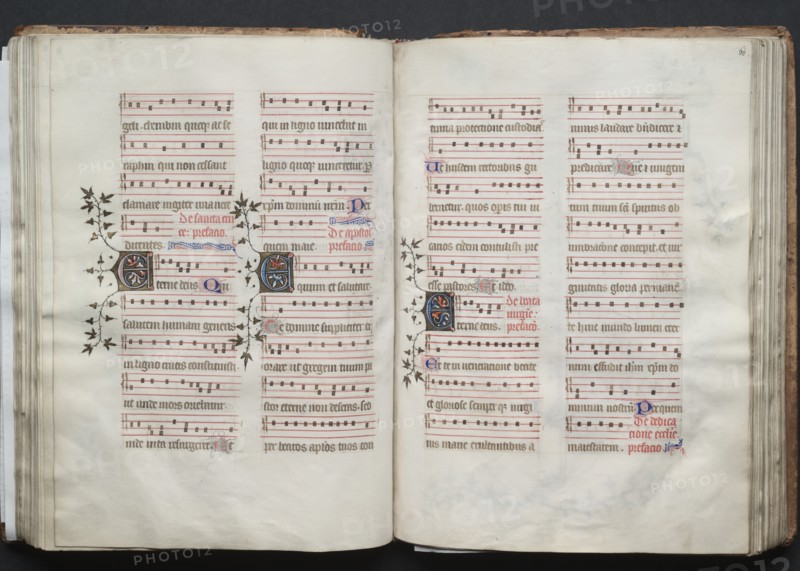 geli. cherubin quoqz ac se
raphin. qui non cessant
clamare iugiter una voce
De sancta cru
ce: prefatio.
dicentes.
Eterne deus. Qui
salutem humani generis
in ligno crucis constituisti.
ut unde mors oriebatur.
inde uita resurgeret. Et
qui in ligno uincebat in
ligno quoqz uinceretur p
xpm dominum nrm. Per
quem maie.
De apostol
prefatio
Equum et salutare.
Te domine suppliciter ex
orare ut gregem tuum pa
stor eterne non deseras. sed
per beatos aplos tuos con
tinua protectione custodias.
Ut hisdem rectoribus gu
bernetur. quos opis tui ui
carios eidem contulisti pre
esse pastores. Et ideo.
De beata
uirgie:
prefacio.
Eterne deus.
Et te in ueneratione beate
et gloriose semper qz uirgi
nis marie exultantibus a
nimis laudare bndicere z
predicare. Que z unigeni
tum tuum sci spiritus ob
umbratione concepit. et uir
ginitatis gloria permanē
te huic mundo lumen eter
num effudit ihm xpm do
minum nostrum. Per quem
maiestatem.
De dedica
tione ecclie.
prefacio
PHOTO12